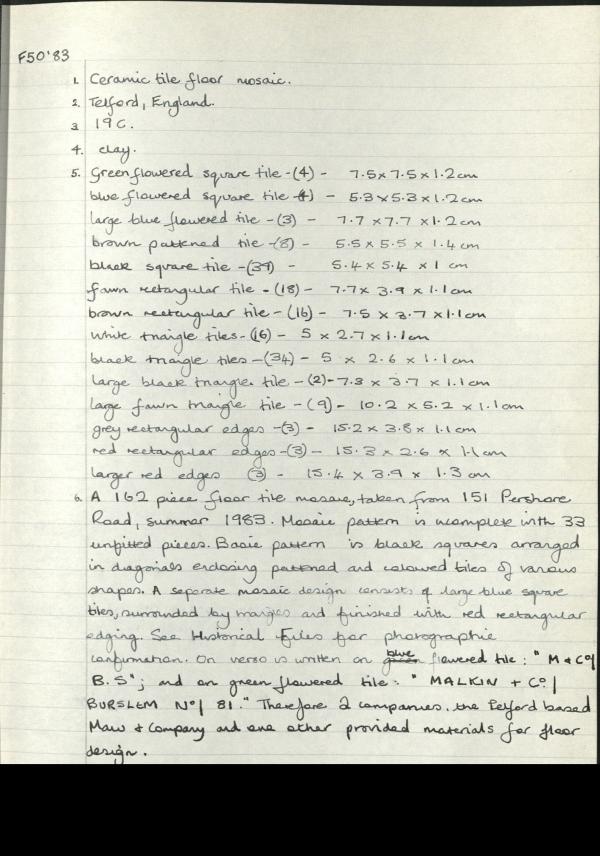 F50'83
1. Ceramic tile floor mosaic.
2. Telford, England.
3 19C.
4. clay.
5. Green flowered square tile -(4) - 7.5 x 7.5 x 1.2cm
blue flowered square tile (4) - 5.3 x 5.3 x 1.2cm
large blue flowered tile -(3) - 7.7 x 7.7 x 1.2 cm
brown pattened tile -(8) - 5.5 x 5.5 x 1.4 cm
black square tile -(39) - 5.4 x 5.4 x 1 cm
fawn rectangular tile -(18) - 7.7 x 3.9 x 1.1cm
brown rectangular tile -(16) - 7.5 x 3.7 x 1.1cm
white triangle tiles -(16) - 5 x 2.7 x 1.1cm
black triangle tiles -(34) - 5 x 2.6 x 1.1cm
large black triangle tile -(2) - 7.3 x 3.7 x 1.1cm
large fawn triangle tile -(9) - 10.2 x 5.2 x 1.1cm
grey rectangular edges -(3) - 15.2 x 3.8 x 1.1cm
red rectangular edges -(3) - 15.3 x 2.6 x 1.1cm
larger red edges (3) - 15.4 x 3.9 x 1.3 cm
6. A 162 piece floor tile mosaic, taken from 151 Pershore
Road, summer 1983. Mosaic pattern is incomplete with 33
unfitted pieces. Basic pattern is black squares arranged
in diagonals enclosing pattened and coloured tiles of various
shapes. A separate mosaic design consists of large blue square
tiles, surrounded by triangles and finished with red rectangular
edging. See Historical Files for photographic
confirmation. On verso is written on green blue flowered tile: "M & Co/
B.S"; and on green flowered tile: "MALKIN + Co. /
BURSLEM No/ 81." Therefore 2 companies, the Telford based
Maw & Company and one other provided materials for floor
design.